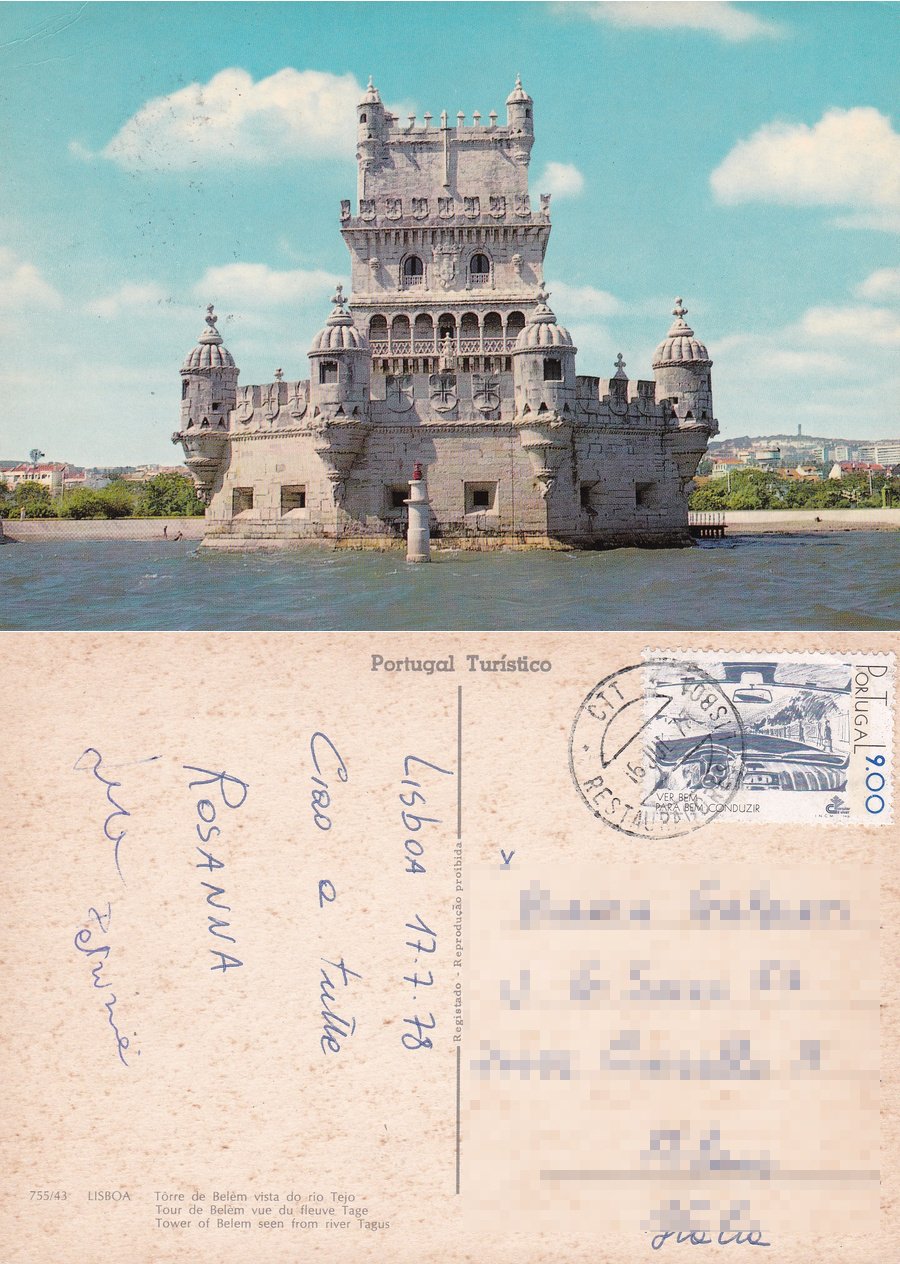 Portugal Turístico
Lisboa 17.7.78
Ciao a tutte
ROSANNA
PORTUGAL 9.00
VER BEM
PARA BEM CONDUZIR
CTT
RESTAURADORES
LISBOA
16 JUL
Registado - Reprodução proibida
Italia
755/43 LISBOA Tôrre de Belém vista do rio Tejo
Tour de Belém vue du fleuve Tage
Tower of Belem seen from river Tagus